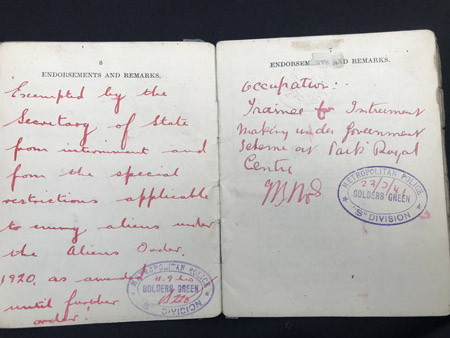 6
ENDORSEMENTS AND REMARKS.
Exempted by the
Secretary of State
from internment and
from the special
restrictions applicable
to enemy aliens under
the Aliens Order,
1920, as amended
until further
order.
METROPOLITAN POLICE
GOLDERS GREEN
"S" DIVISION
7
ENDORSEMENTS AND REMARKS.
Occupation:-
Trainee for Instrument
Making under Government
Scheme at Park Royal
Centre
METROPOLITAN POLICE
GOLDERS GREEN
"S" DIVISION